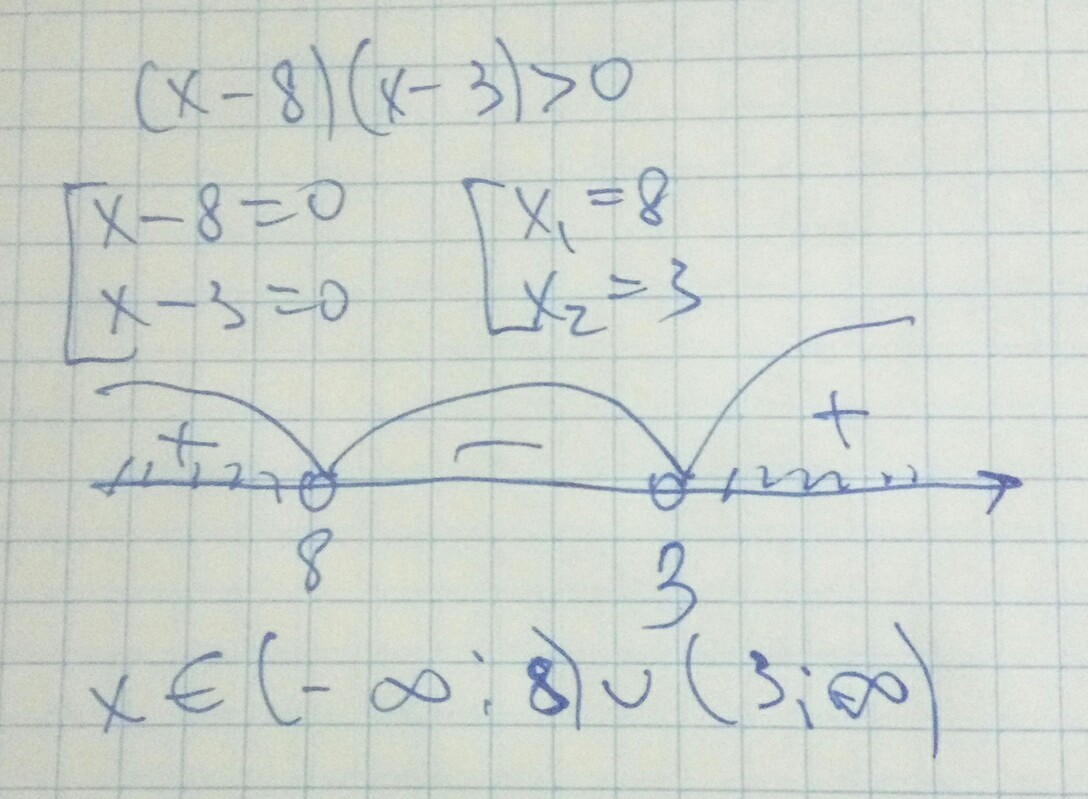 (x-8)(x-3)>0
x-8=0 x₁=8
x-3=0 x₂=3
+ - +
8 3
x∈(-∞;8)∪(3;∞)